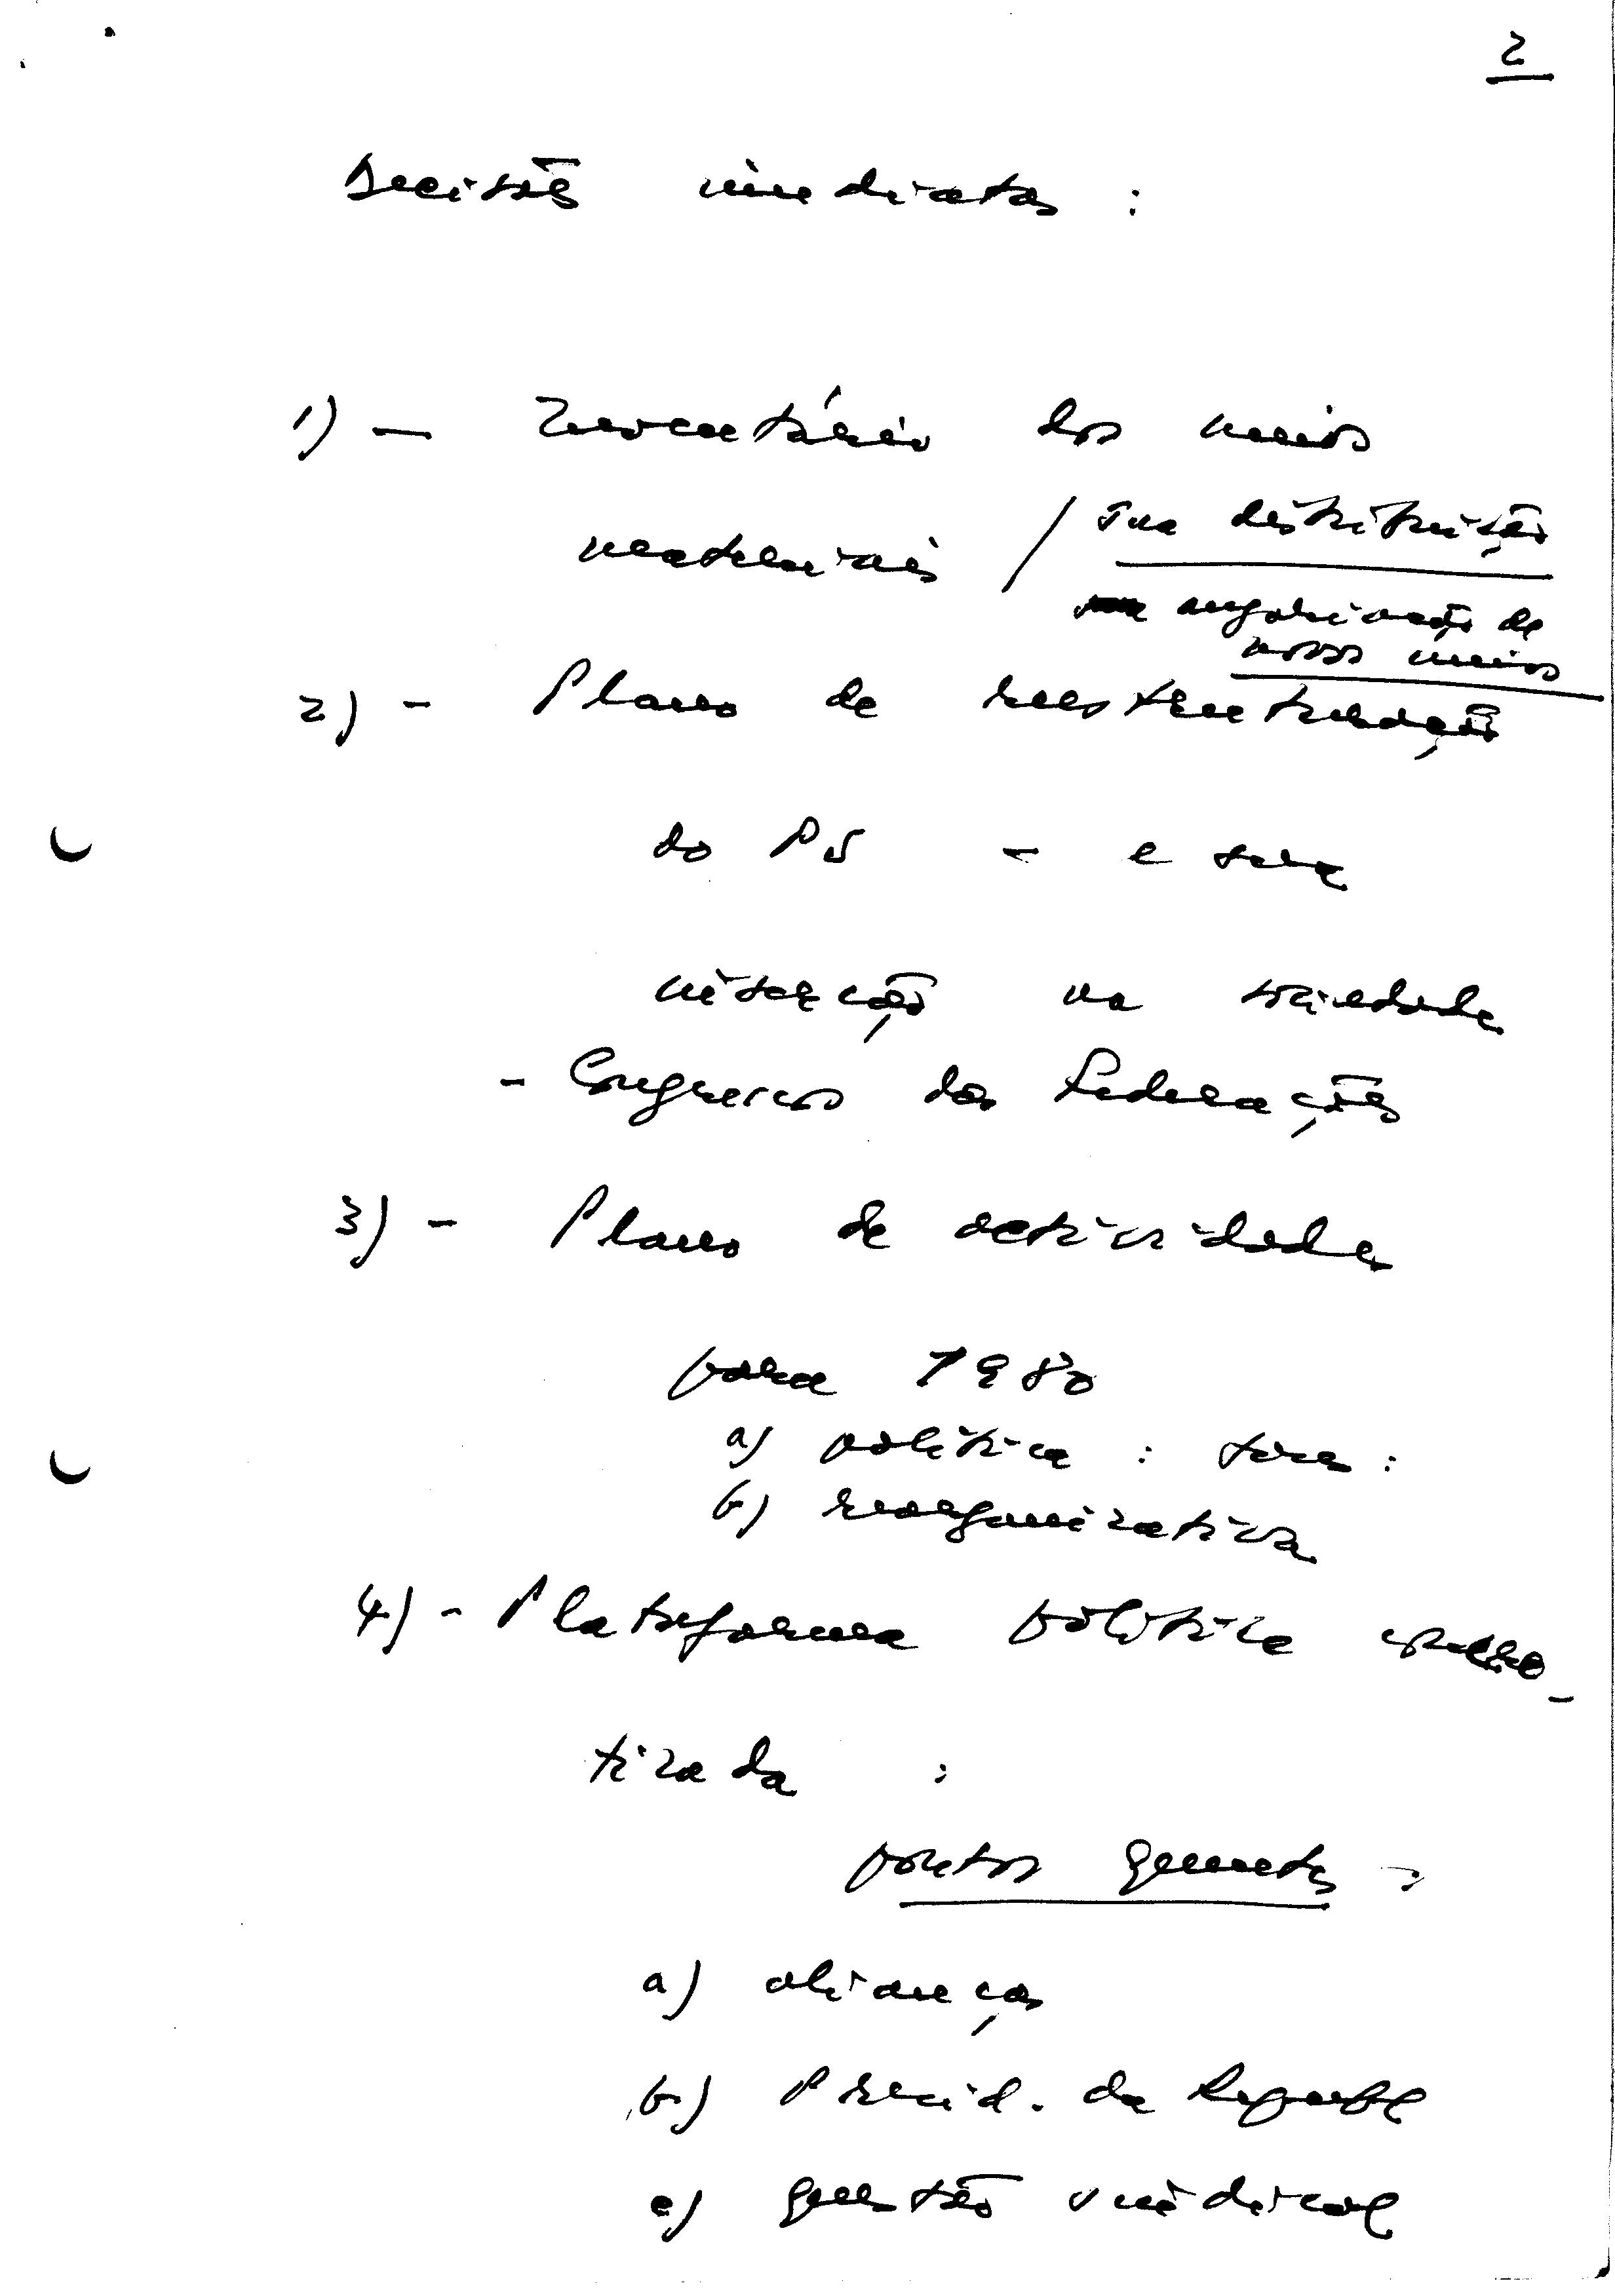 2
Decisões imediatas :
1) — Inventário dos meios
materiais / sua distribuição
angariação de
novos meios
2) - Plano de reestruturação
do PS - e sua
inserção na sociedade
- Congresso das Federações
3) - Plano de actividades
para 1980
a) política : :
b) reorganizativa
4) - Plataforma política
tizada :
pontos quentes :
a) alianças
b) Presid. da Repúbl
c) questão sindical